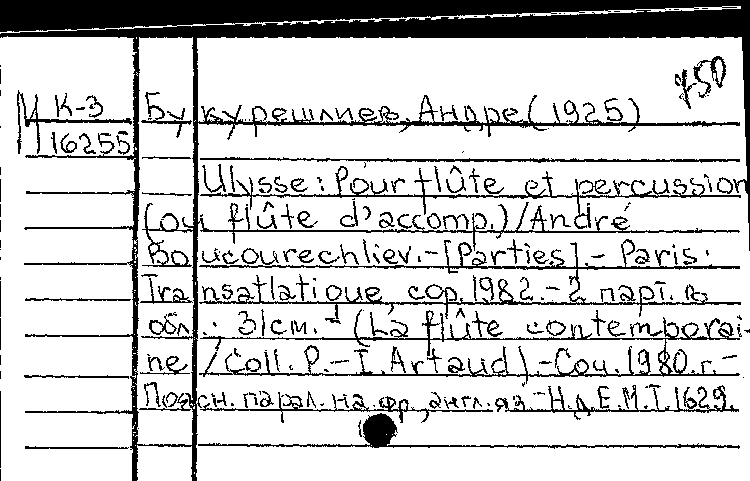 750
М К-3
16255
Букурешлиев, Андре (1925)
Ulysse: Pour flûte et percussion
(ou flûte d'accomp.)/André
Boucourechliev.-[Parties].- Paris:
Transatlatique, cop. 1982.-2 парт. в
обл.; 31см.- (La flûte contemporai-
ne /Coll. P.-I. Artaud).-Соч. 1980.г.-
Поясн. парал. на фр., англ. яз.-Н.д. E.M.T. 1629.